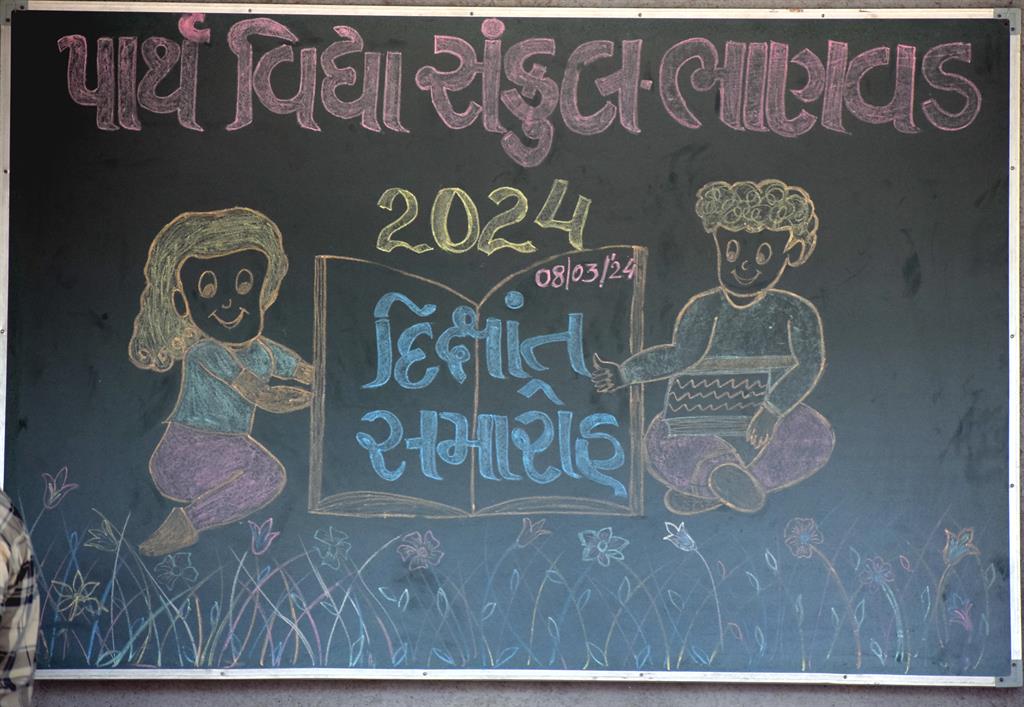 પાર્થ વિદ્યા સંકુલ-ભાણવડ
2024
08/03/'24
દિક્ષાંત
સમારોહ